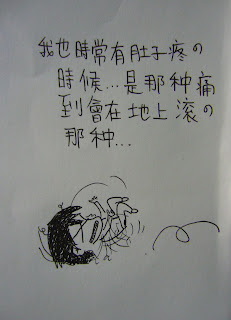 我也時常有肚子疼の
時候...是那种痛
到會在地上滾の
那种...